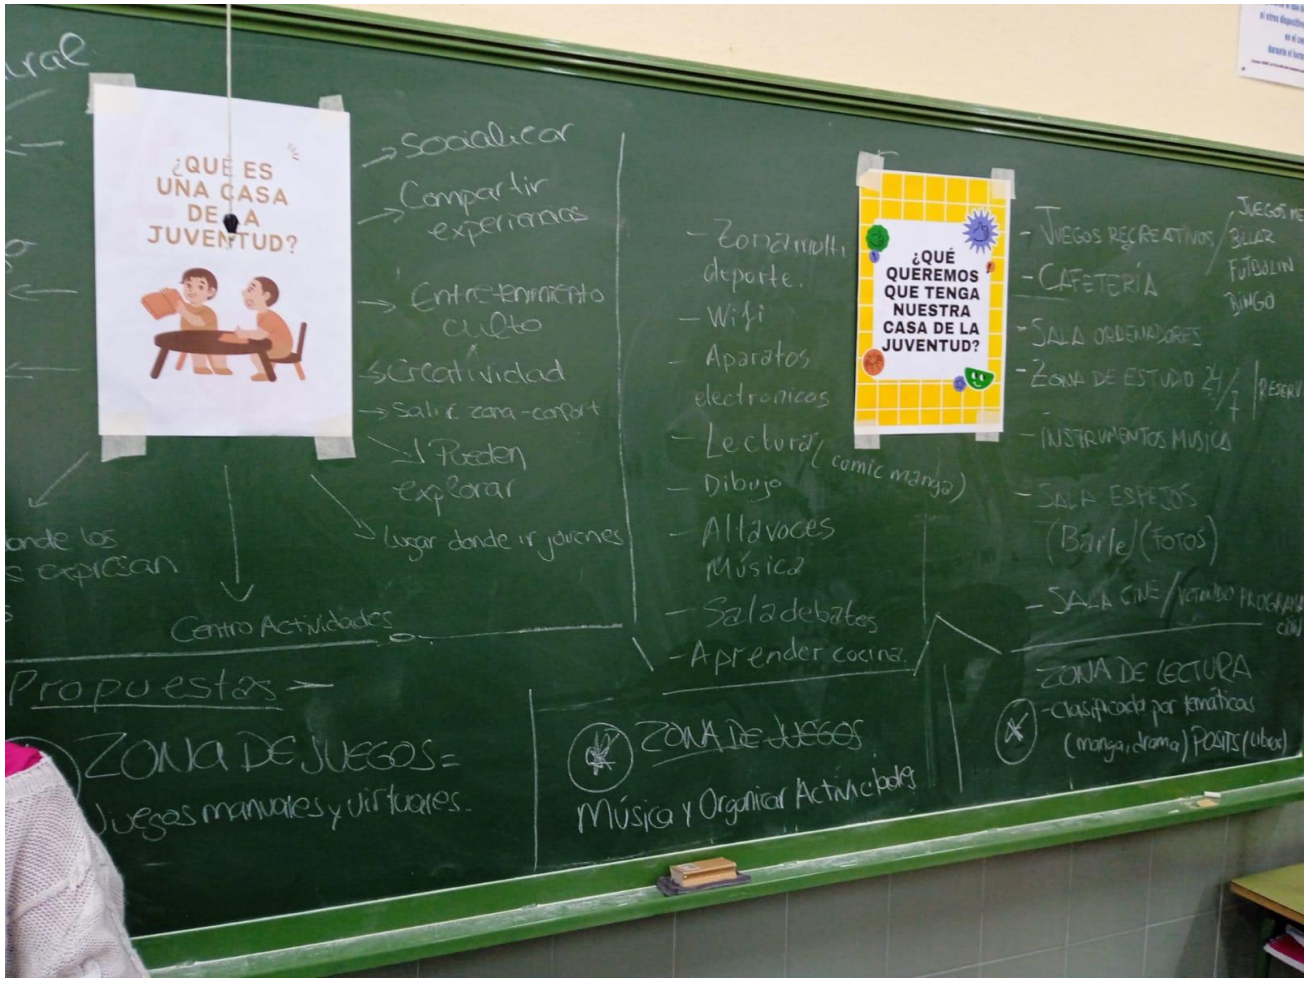 ural
¿QUÉ ES
UNA CASA
DE LA
JUVENTUD?
Socializar
Compartir
experiencias
Entretenimiento
culto
Creatividad
Salir zona-confort
Pueden
explorar
Lugar donde ir jóvenes
onde los
s expresan
Centro Actividades
- Zona multi
deporte.
- Wifi
- Aparatos
electronicos
- Lectura (comic manga)
- Dibujo
- Altavoces
Música
- Sala debates
- Aprender cocina.
¿QUÉ
QUEREMOS
QUE TENGA
NUESTRA
CASA DE LA
JUVENTUD?
- JUEGOS RECREATIVOS /
JUEGOS ME
BILLAR
FUTBOLIN
BINGO
- CAFETERÍA
- SALA ORDENADORES
- ZONA DE ESTUDIO 24/7 | RESERV
- INSTRUMENTOS MUSICA
- SALA ESPEJOS
(Baile) (FOTOS)
- SALA CINE / PROGRAMA
Propuestas -
ZONA DE JUEGOS =
Juegos manuales y virtuales.
ZONA DE JUEGOS
Música y Organizar Actividades
ZONA DE LECTURA
- Clasificada por temáticas
(manga, drama) POSITS (Libros)